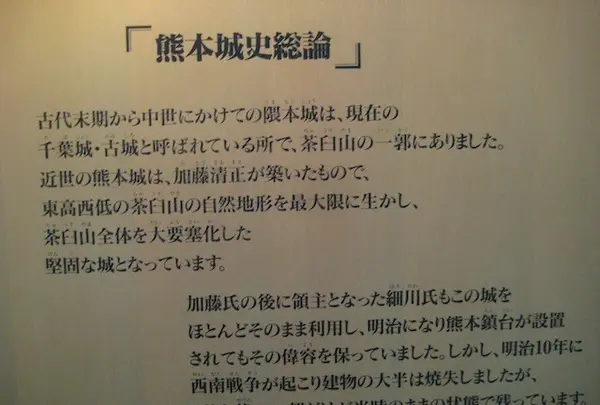 「熊本城史総論」
古代末期から中世にかけての隈本城は、現在の
千葉城・古城と呼ばれている所で、茶臼山の一郭にありました。
近世の熊本城は、加藤清正が築いたもので、
東高西低の茶臼山の自然地形を最大限に生かし、
茶臼山全体を大要塞化した
堅固な城となっています。
加藤氏の後に領主となった細川氏もこの城を
ほとんどそのまま利用し、明治になり熊本鎮台が設置
されてもその偉容を保っていました。しかし、明治10年に
西南戦争が起こり建物の大半は焼失しましたが、
当時のままの状態で残っています。